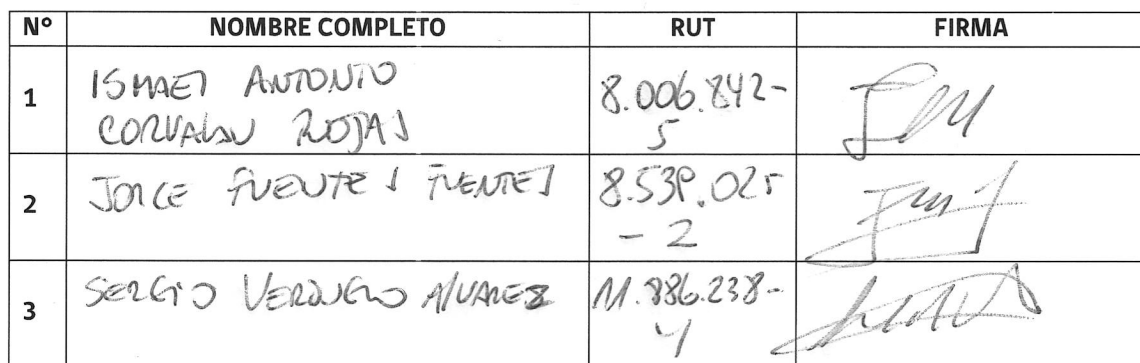 N° NOMBRE COMPLETO RUT FIRMA
1 ISMAEL ANTONIO 8.006.842-
CORVALAN ROJAS 5
2 JORGE FUENTES FUENTES 8.539.025
- 2
3 SERGIO VERDUGO ALVAREZ 11.886.238-
4